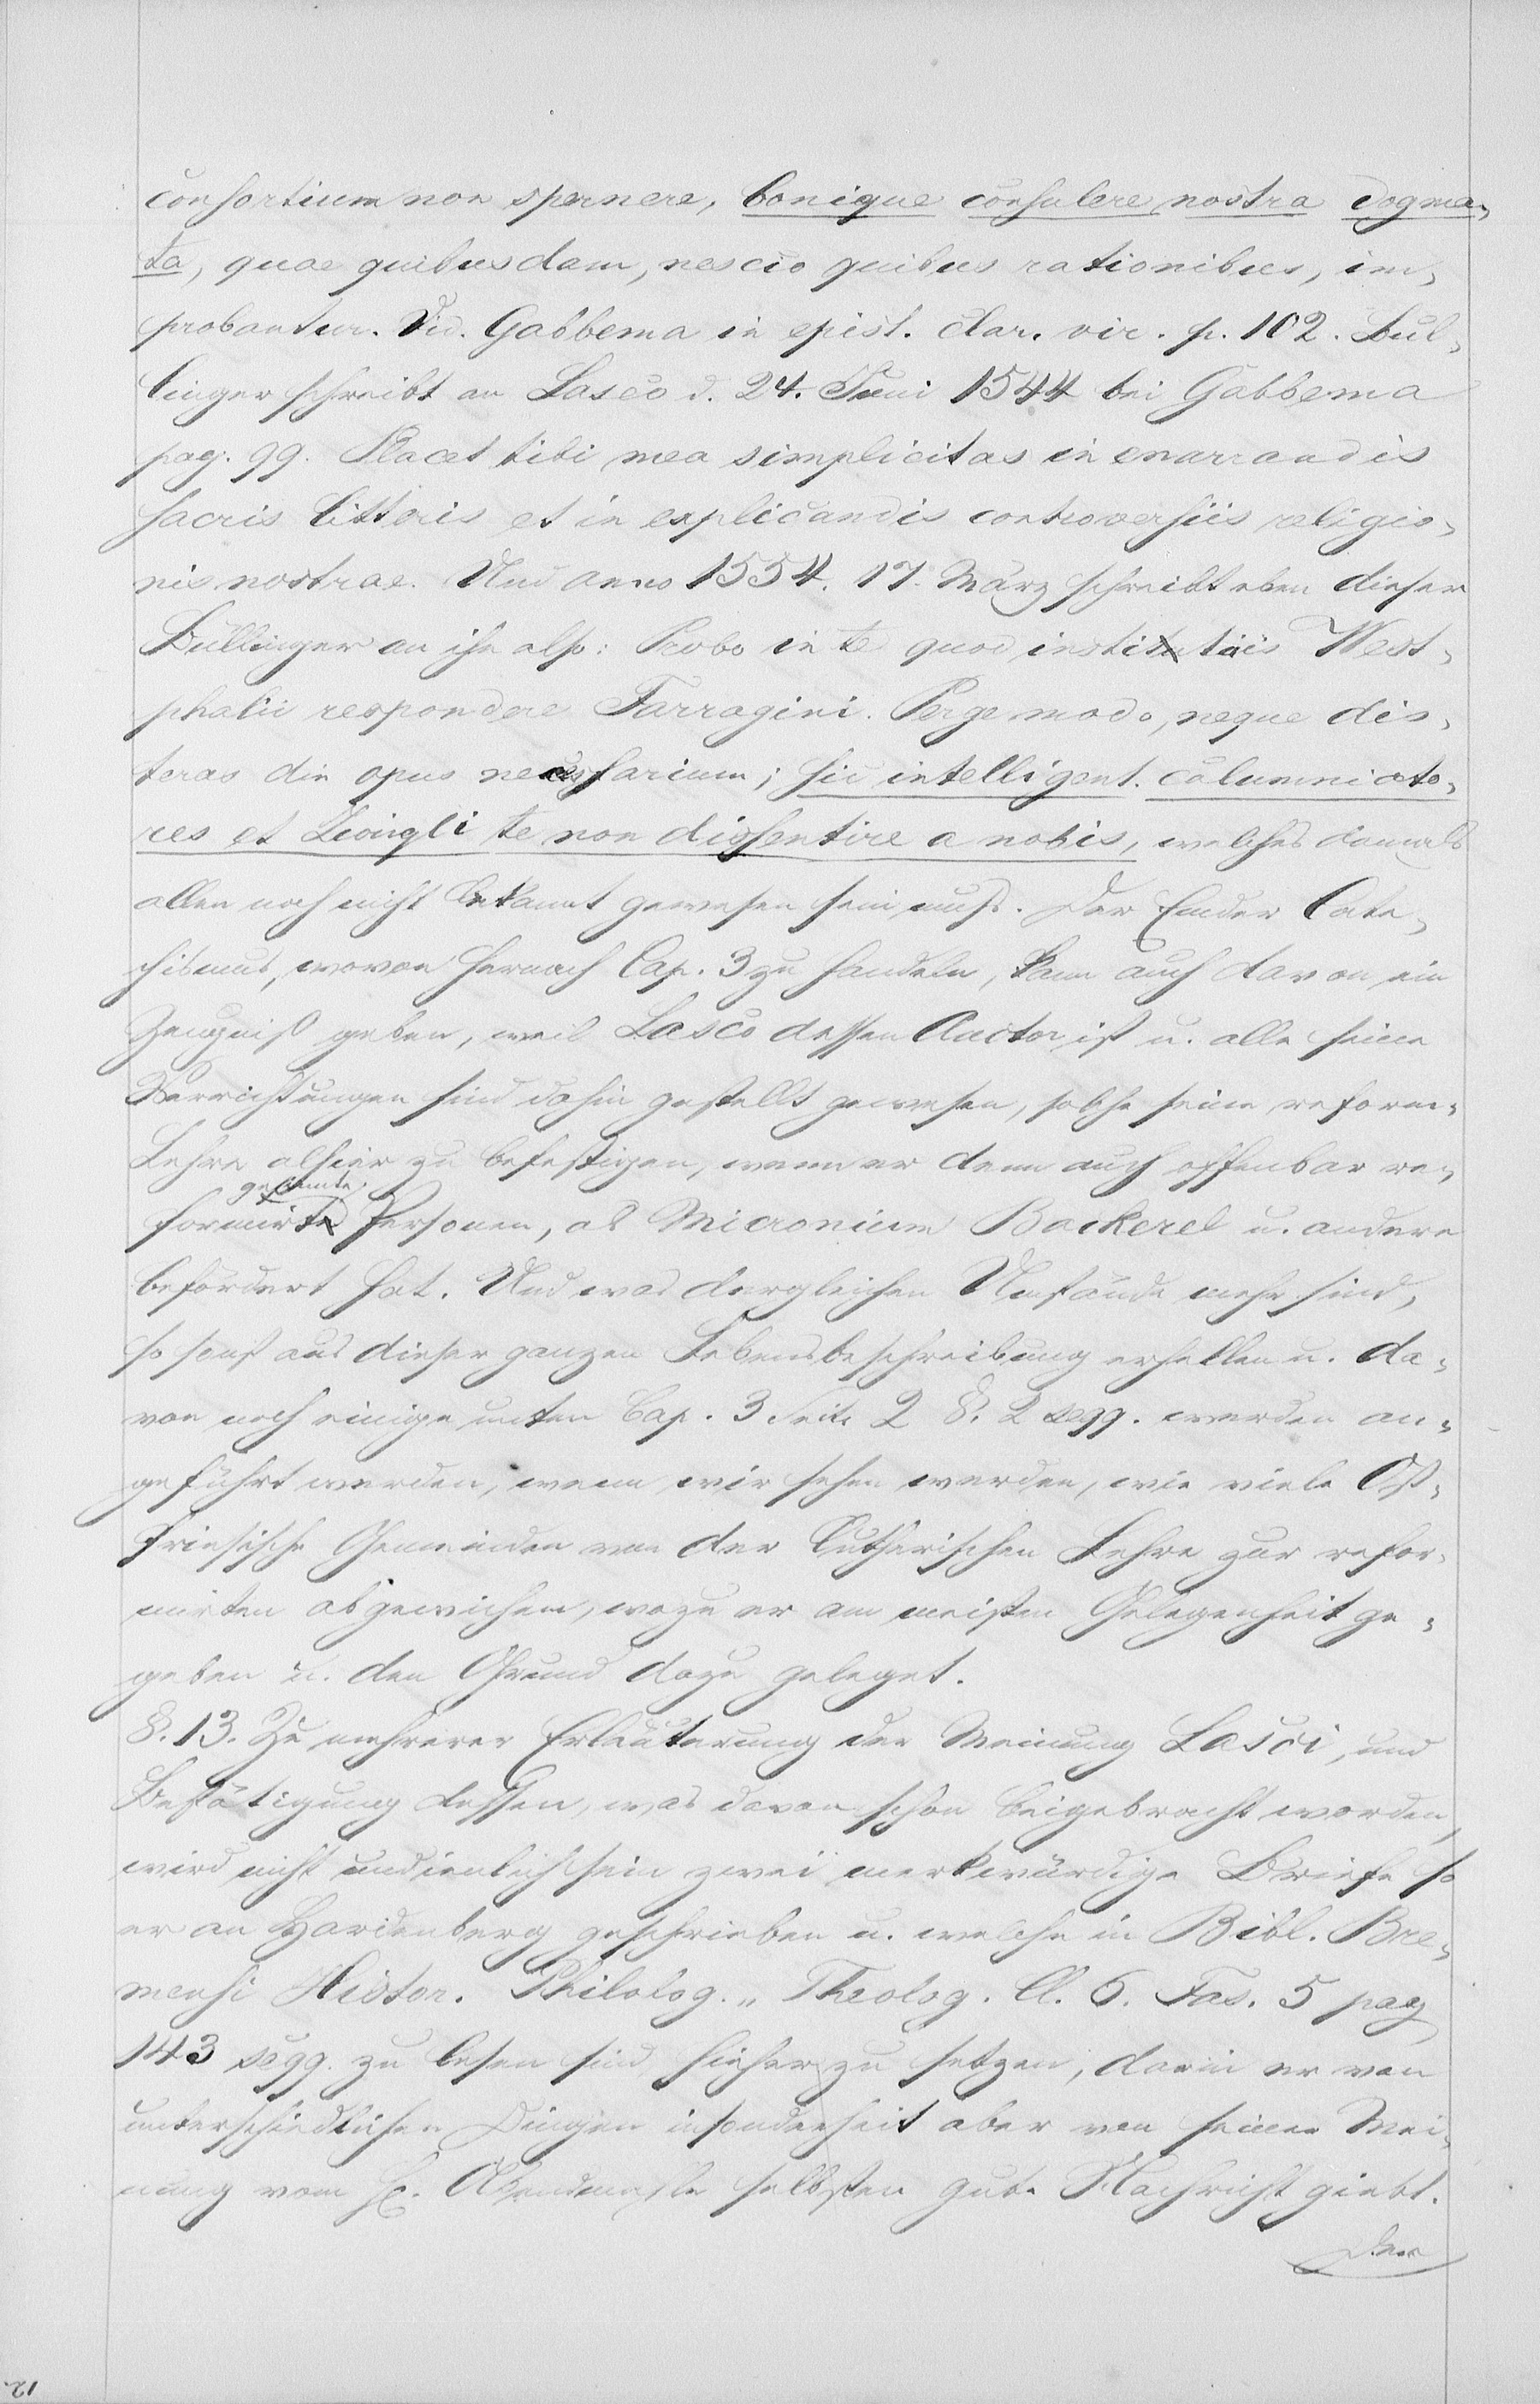 consortium non spernere, bonique consulere nostra dogma-
ta, quae quibusdam, nescio quibus rationibus, im-
probantur. Vid. Gabbema in epist. clar. vir. p. 102. Bul-
linger schreibt an Lasco d. 24. Juni 1544 bei Gabbema
pag. 99. Placet tibi mea simplicitas in enarrandis
sacris litteris et in explicandis controversiis religio-
nis nostrae. Und anno 1554. 17. März schreibt eben dieser
Bullinger an ihn also: Probo in te quod institutis West-
phalii respondere Farragini. Perge modo, neque dis-
teras diu opus necessarium; sic intelligent. calumniato-
res et Zwingli te non dissentire a nobis, welches damals
allen noch nicht bekannt gewesen sein muß. Der Emder Cate-
chismus, wovon hernach Cap. 3 zu handeln, kann auch davon ein
Zeugniß geben, weil Lasco dessen Auctor ist u. alle seine
Verrichtungen sind dahin gestellt gewesen, solche seine reform-
Lehre alhier zu befestigen, wenn er denn auch offenbar re-
gesinnte
formirt Personen, als Micronium Backerel u. andere
befördert hat. Und was dergleichen Umstände mehr sind,
so sonst aus dieser ganzen Lebensbeschreibung erhellen u. da-
von noch einige unten Cap. 3 Seite 2 §. 2 seqq. werden an-
geführt werden, wenn wir sehen werden, wie viele Ost-
friesische Gemeinden von der Lutherischen Lehre zur refor-
mirten abgewichen, wozu er am meisten Gelegenheit ge-
geben u. den Grund dazu geleget.
§. 13. Zu mehrerer Erläuterung der Meinung Lasci, und
Bestätigung dessen, was davon schon beigebracht worden,
wird nicht undienlich sein zwei merkwürdige Briefe so
er an Hardenberg geschrieben u. welche in Bibl. Bre-
mensi Histor. Philolog. „ Theolog. Cl. 6. Fas. 5 pag
143 seqq. zu lesen sind hieher zu setzen, darin er von
unterschiedlichen Dingen insonderheit aber von seiner Mei-
nung vom H. Abendmahle selbsten gute Nachricht giebt.
Der
12